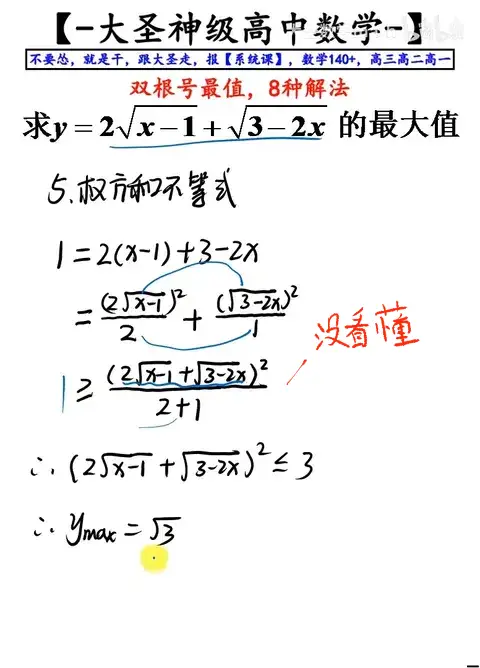 【-大圣神级高中数学-】
不要怂，就是干，跟大圣走，报【系统课】，数学140+，高三高二高一
双根号最值，8种解法
求y=2√(x-1)+√(3-2x) 的最大值
5.权方和不等式
1=2(x-1)+3-2x
=(2√(x-1))²/2+(√(3-2x))²/1
没看懂
1≥(2√(x-1)+√(3-2x))²/(2+1)
∴(2√(x-1)+√(3-2x))²≤3
∴yₘₐₓ=√3